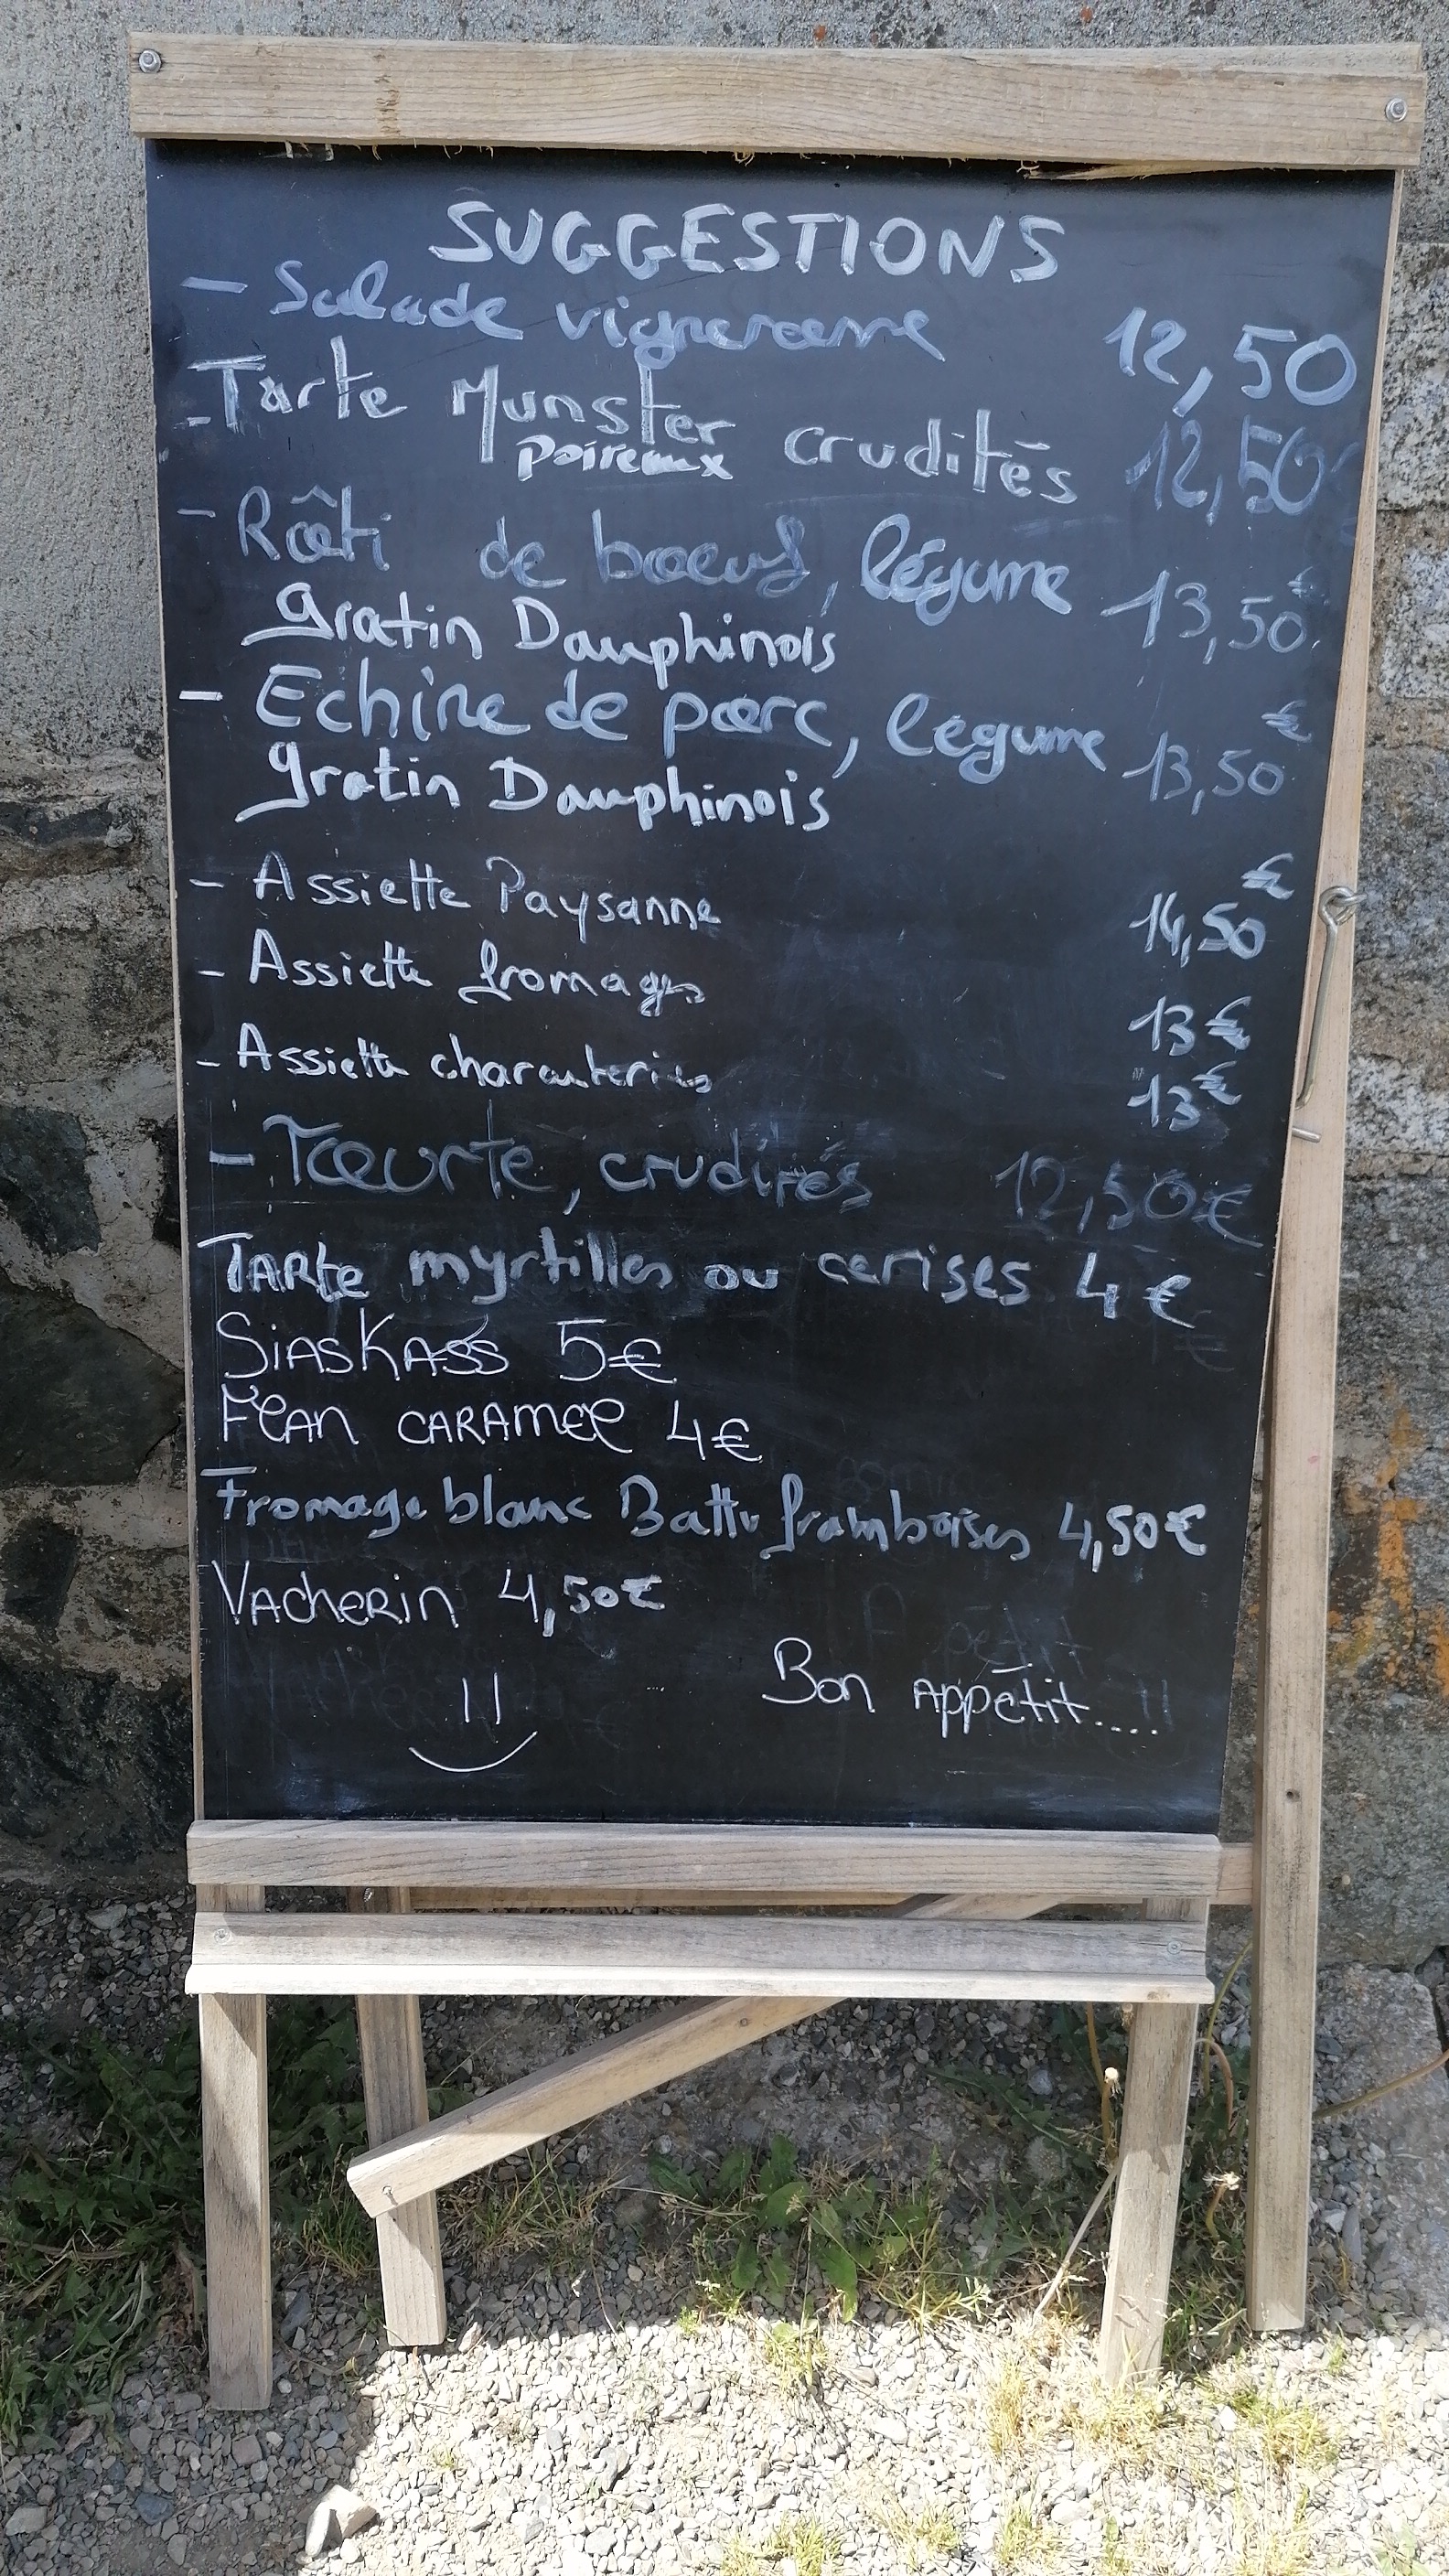 SUGGESTIONS
- Salade vigneronne 12,50
- Tarte Munster crudités 12,50€
poireaux
- Rôti de boeuf, légume 13,50€
gratin Dauphinois
- Echine de porc, légume 13,50€
gratin Dauphinois
- Assiette Paysanne 14,50€
- Assiette fromages 13€
- Assiette charcuteries 13€
- Tourte, crudités 12,50€
TARte myrtilles ou cerises 4€
SiASKASS 5€
FlAN CARAMEl 4€
Fromage blanc Battu framboises 4,50€
VAcheRiN 4,50€
Bon Appétit....